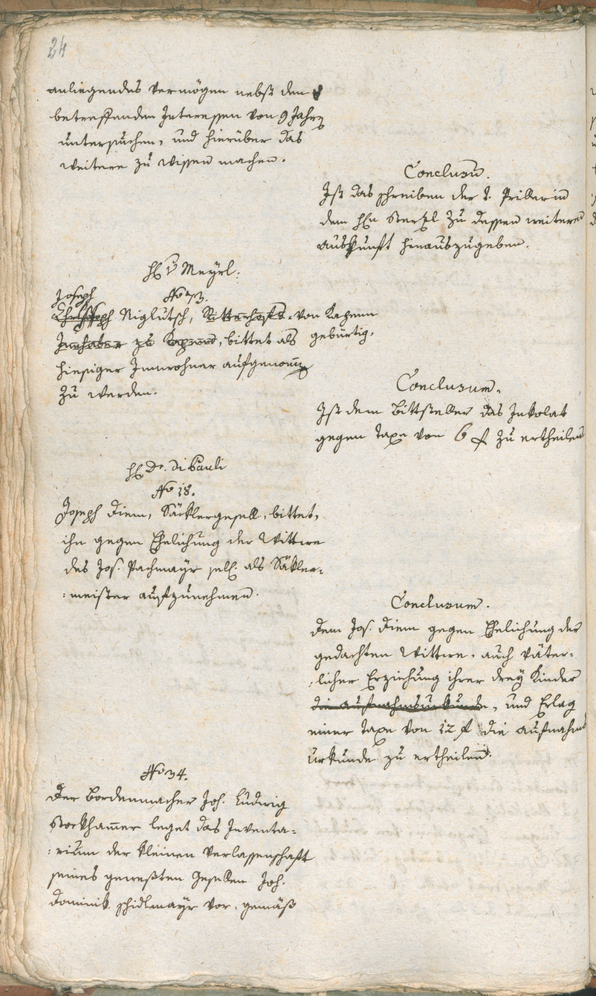 24
anliegendes Vermögen nebst den
betreffenden Interessen von 9 Jahr
untersuchen, und hierüber das
weitere zu wissen machen.
Conclusum.
Ist das Schreiben der
dem Hn zu dessen weitere
Auskunft hinauszugeben.
H. v Meyrl:
No 73.
Joseph
Niglutsch, von
zu bittet als gebürtig,
hiesiger Innwohner aufgenomm
zu werden.
Conclusum.
Ist dem Bittsteller das Inkolat
gegen Taxe von 6 f zu ertheilen
H. Dr. Di Pauli
No 18.
Joseph Diem, Säcklergesell, bittet,
ihn gegen Ehelichung der Wittwe
des Jos. Pachmayr sel. als Säckler-
meister aufzunehmen.
Conclusum.
Dem Jos. Diem gegen Ehelichung der
gedachten Wittwe, auch väter-
licher Erziehung ihrer drey Kinder
die Aufnahmsurkunde, und Erlag
einer Taxe von 12 f die Aufnahms
urkunde zu ertheilen.
No 34.
Der Bordenmacher Joh. Ludwig
Stockhamer leget das Inventa-
rium der kleinen Verlassenschaft
seines gewesten Gesellen Joh.
Dominik Schidlmayr vor, gemäß